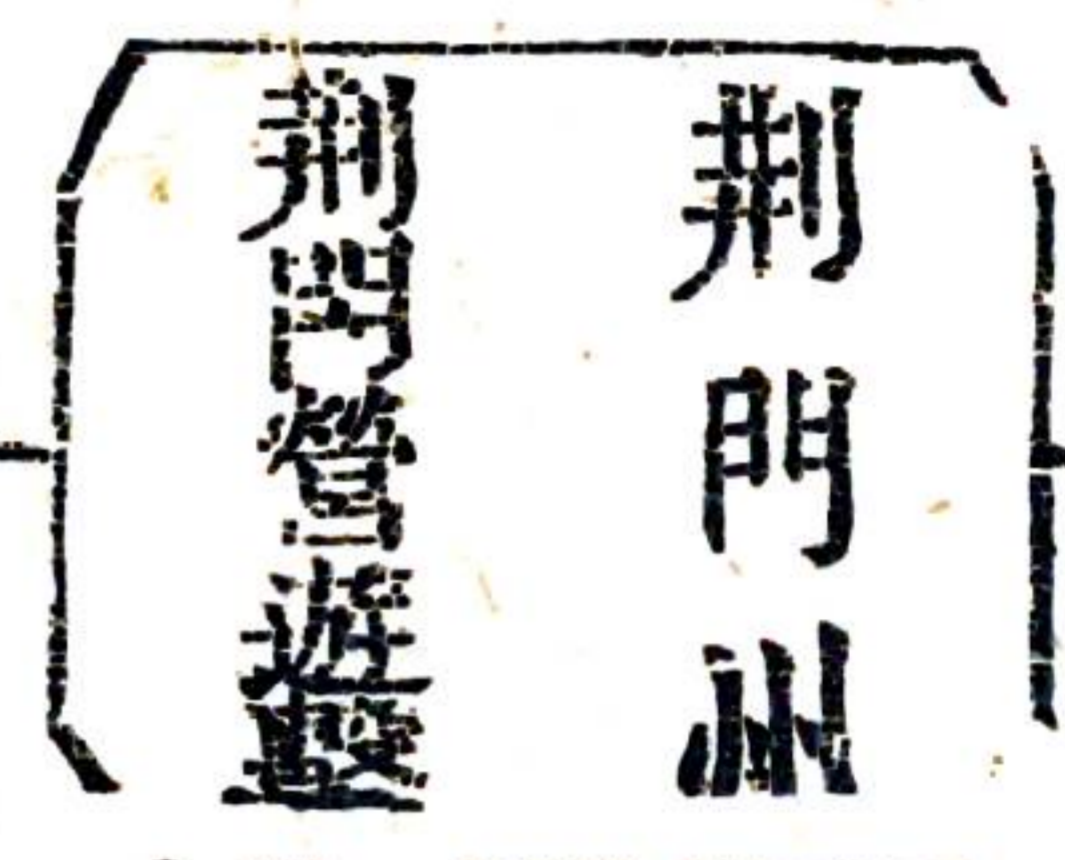 荆門州
荆門營遊擊